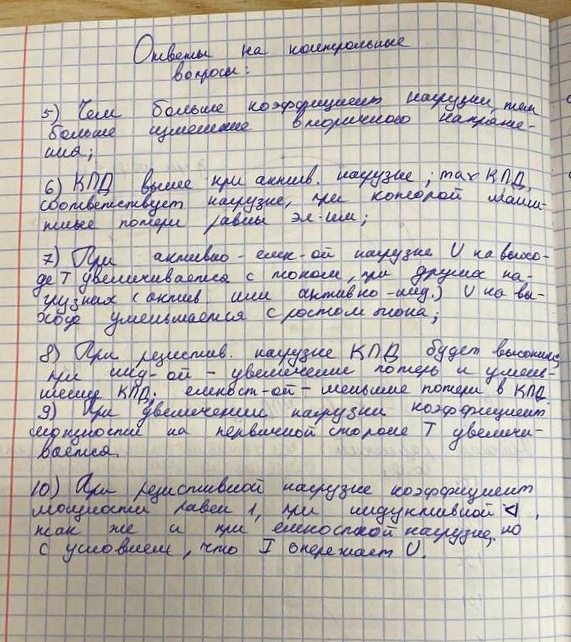 Ответы на контрольные
вопросы:
5) Чем больше коэффициент нагрузки, тем
больше изменение вторичного напряже-
ния;
6) КПД выше при актив. нагрузке; max КПД
соответствует нагрузке, при которой магни-
тные потери равны эл-им;
7) При активно-емк-ой нагрузке U на выхо-
де T увеличивается с током, при других на-
грузках (актив или активно-инд.) U на вы-
ходе уменьшается с ростом тока;
8) При резистив. нагрузке КПД будет высоким;
при инд-ой - увеличение потерь и умень-
шение КПД; емкост-ой - меньше потери в КПД.
9) При увеличении нагрузки коэффициент
мощности на первичной стороне T увеличи-
вается.
10) При резистивной нагрузке коэффициент
мощности равен 1, при индуктивной <1,
так же и при емкостной нагрузке, но
с условием, что I опережает U.